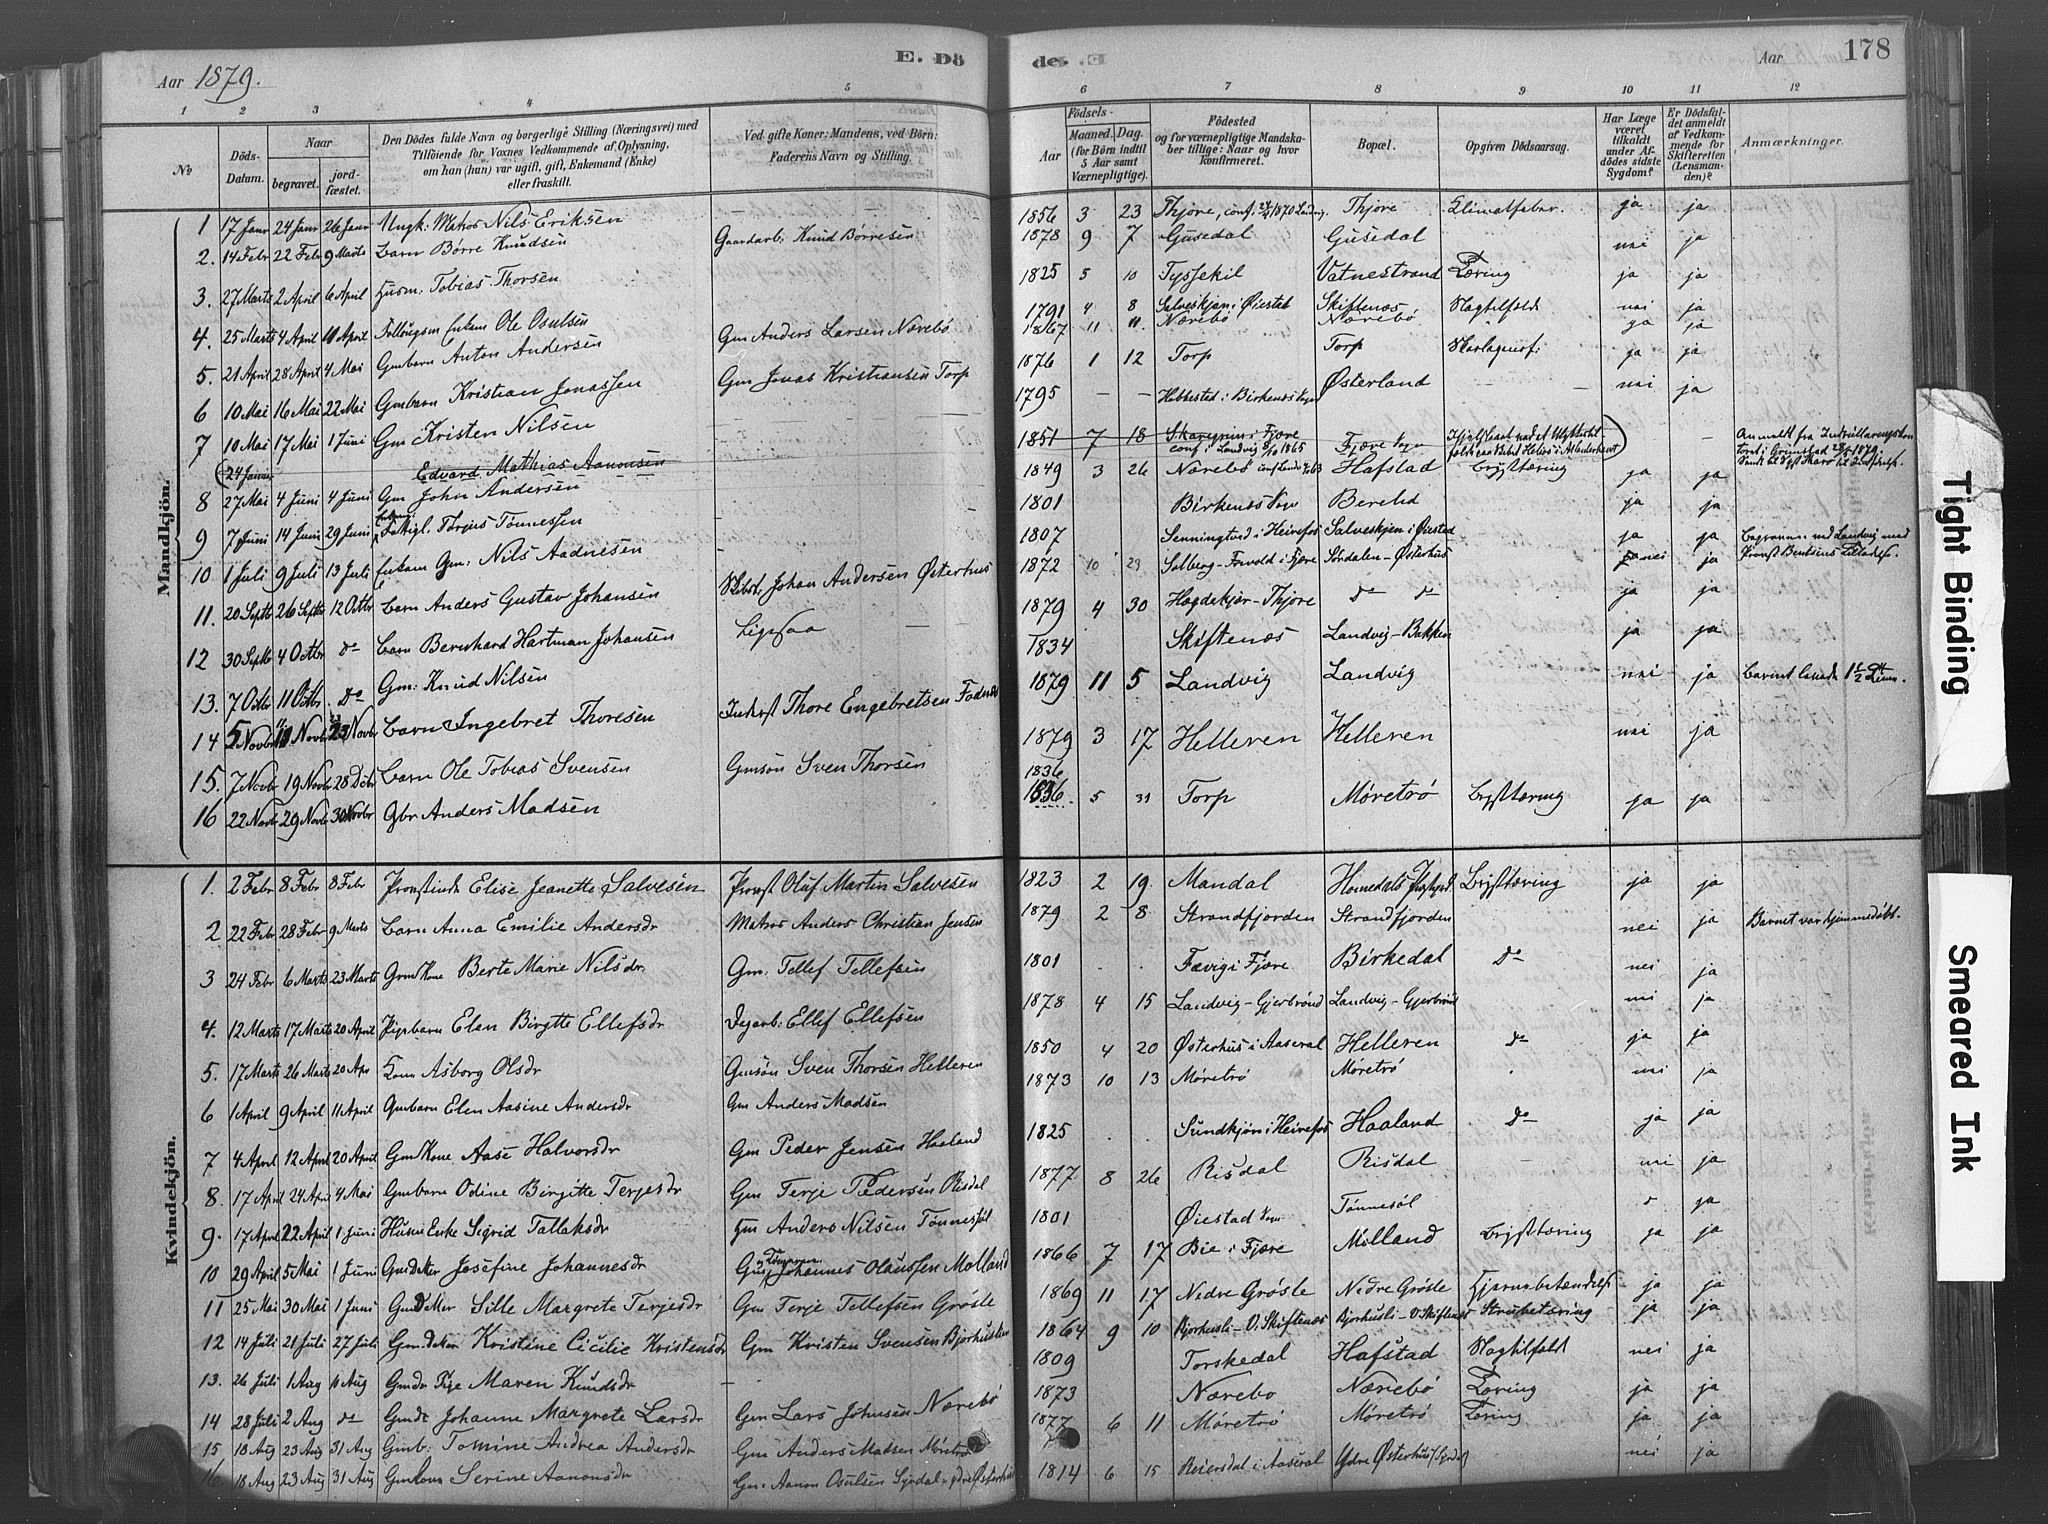 Aar 1879.
E. Dö
de. E
Aar
178
1 2 3 4 5 6 7 8 9 10 11 12
No
Döds-Datum.
Naar
begravet. jordfæstet.
Den Dödes fulde Navn og borgerlige Stilling (Næringsvei) med
Tilföiende for Voxnes Vedkommende af Oplysning,
om han (hun) var ugift, gift, Enkemand (Enke)
eller fraskilt.
Ved gifte Koner: Mandens, ved Börn:
Faderens Navn og Stilling.
Födsels-
Aar
Maaned. Dag.
(for Börn indtil
5 Aar samt
Værnepligtige).
Födested
og for værnepligtige Mandskaber tillige: Naar og hvor
konfirmeret.
Bopæl.
Opgiven Dödsaarsag.
Har Læge
været
tilkaldt
under Afdödes sidste
Sygdom?
Er Dödsfaldet anmeldt
af Vedkommende for
Skifteretten
(Lensmanden)?
Anmærkninger.
Mandkjön.
1 17 Janr 24 Janr 26 Janr Ungk: Matros Nils Eriksen — 1856 3 23 Thjore, conf. 1870 Landvig Thjore Klimatfeber ja ja
2. 14 Febr 22 Febr 9 Marts Barn Börre Knudsen Gaardarb: Knud Börresen 1878 9 7 Gusedal Gusedal nei ja
3. 27 Marts 2 April 6 April Husm: Tobias Thorsen 1825 5 10 Tyssekil Vatnestrand Tæring ja ja
4. 25 Marts 4 April 11 April Ole Osulsen 1791 4 8 Salveskjen i Øiestad Skiftenæs Slagtilfælde nei ja
5. 21 April 28 April 4 Mai Gmbarn Anton Andersen Gm Anders Larsen Nærebö 1867 11 11. Nærebö Nærebö ja ja
6 10 Mai 16 Mai 22 Mai Gmbarn Kristian Jonassen Gm Jonas Kristiansen Torp 1876 1 12 Torp Torp ja ja
7 10 Mai 17 Mai 1 Juni Gm Kristen Nilsen 1795 — — i Birkenæs Sogn Østerland nei ja
(24 Juni Edvard Mathias Aanonsen 1851 7 18 i Fjære conf. i Landvig 8/10 1865 Fjære Sogn
8 27 Mai 4 Juni 4 Juni Gm John Andersen 1849 3 26 Nærebö Hafstad Brysttæring ja ja
9 7 Juni 14 Juni 29 Juni Fattigl. Torjus Tönnessen 1801 Birkenæs Sogn ja ja
10 1 Juli 9 Juli 13 Juli Enkem Gm: Nils Aadnesen 1807 i Heirefos Salveskjen i Øiestad ja ja
11. 20 Septbr 26 Septbr 12 Octbr Barn Anders Gustav Johansen Johan Andersen Østerhus 1872 10 29 i Fjære Söndalen-Østerhus nei ja
12 30 Septbr 4 Octbr do Barn Bernhard Hartman Johansen Ligesaa 1879 4 30 Hagdekjær-Thjore do do ja ja
13. 7 Octbr 11 Octbr Do Gm: Knud Nilsen 1834 Skiftenæs Landvig-Bakken ja ja
14 5 Novbr 11 Novbr 23 Novbr Barn Ingebret Thoresen Inderst Thore Engebretsen 1879 11 5 Landvig Landvig nei ja Barnet levede 1 1/2 Time.
15. 7 Novbr 19 Novbr 28 Debr Barn Ole Tobias Svensen Gmsön Sven Thorsen 1879 3 17 Helleren Helleren nei ja
16 22 Novbr 29 Novbr 30 Novbr Gbr Anders Madsen 1836 1836 5 31 Torp Möretrö Brysttæring ja ja
Kvindekjön.
1. 2 Febr 8 Febr 8 Febr Provstinde Elise Jeanette Salvesen Provst Oluf Martin Salvesen 1823 2 19. Mandal Homedals Brysttæring ja ja
2 22 Febr 28 Febr 9 Marts Barn Anna Emilie Andersdr Matros Anders Christian Jensen 1879 2 8 Strandfjorden Strandfjorden nei ja Barnet var hjemmedöbt.
3 24 Febr 6 Marts 23 Marts Gmkone Berte Marie Nilsdr. Gm: Tellef Tellefsen 1801 Fævig i Fjære Birkedal Do nei ja
4. 12 Marts 17 Marts 20 April Pigebarn Elen Birgitte Ellefsdr Dagarb: Ellef Ellefsen 1878 4 15 Landvig-Gjerbrönd Landvig-Gjerbrönd nei ja
5. 17 Marts 26 Marts 20 Apr Kone Asborg Olsdr Gmsön Sven Thorsen Helleren 1850 4 20 Østerhus i Aaseral Helleren do ja ja
6 1 April 9 April 11 April Gmbarn Elen Aasine Andersdr Gm Anders Madsen 1873 10 13 Möretrö Möretrö nei ja
7 4 April 12 April 20 April GmKone Aase Halvorsdr Gm Peder Jensen Haaland 1825 Sundkjön i Heirefos Haaland Do ja ja
8. 17 April 24 Apr 4 Mai Gmbarn Odine Birgitte Terjesdr Gm Terje Pedersen Risdal 1877 8 26 Risdal Risdal nei ja
9. 17 April 22 April 1 Juni Husm Enke Sigrid Tallaksdr Hm Anders Nilsen Tönnesöl 1801 Øiestad Sogn Tönnesöl ja
10 29 April 5 Mai 1 Juni Gmdatter Josefine Johannesdr Johannes Olaussen Molland 1866 7 17 Bie i Fjære Molland Brysttæring ja ja
11 25 Mai 30 Mai 1 Juni Gmdatter Sille Margrete Terjesdr Gm Terje Tellefsen Grösle 1869 11 17 Nedre Grösle Nedre Grösle Hjernebetændelse ja ja
12 14 Juli 21 Juli 27 Juli Gmdatter Kristine Cicilie Kristensdr Gm Kristen Svensen Bjorhuslien 1864 9 10 Bjorhusli-Ö. Skiftenæs Bjorhusli-Ö. Skiftenæs Strubetæring ja ja
13. 26 Juli 1 Aug 10 Aug Pige Maren Knudsdr — 1809 Torskedal Hafstad Slagtilfælde nei ja
14 28 Juli 2 Aug do Johanne Margrete Larsdr Gm Lars Johnsen Nærebö 1873 Nærebo Nærebö Tæring ja ja
15 18 Aug 23 Aug 31 Aug Gmb: Tomine Andrea Andersdr Gm Anders Madsen Möretrö 1877 6 11 Möretrö Möretrö Tæring ja ja
16 18 Aug 23 Aug 31 Aug Gmkone Serine Aanonsdr Gm: Aanon Osulsen 1814 6 15 Reiersdal i Aaseral Ydre Østerhus nei ja
Tight Binding
Smeared Ink